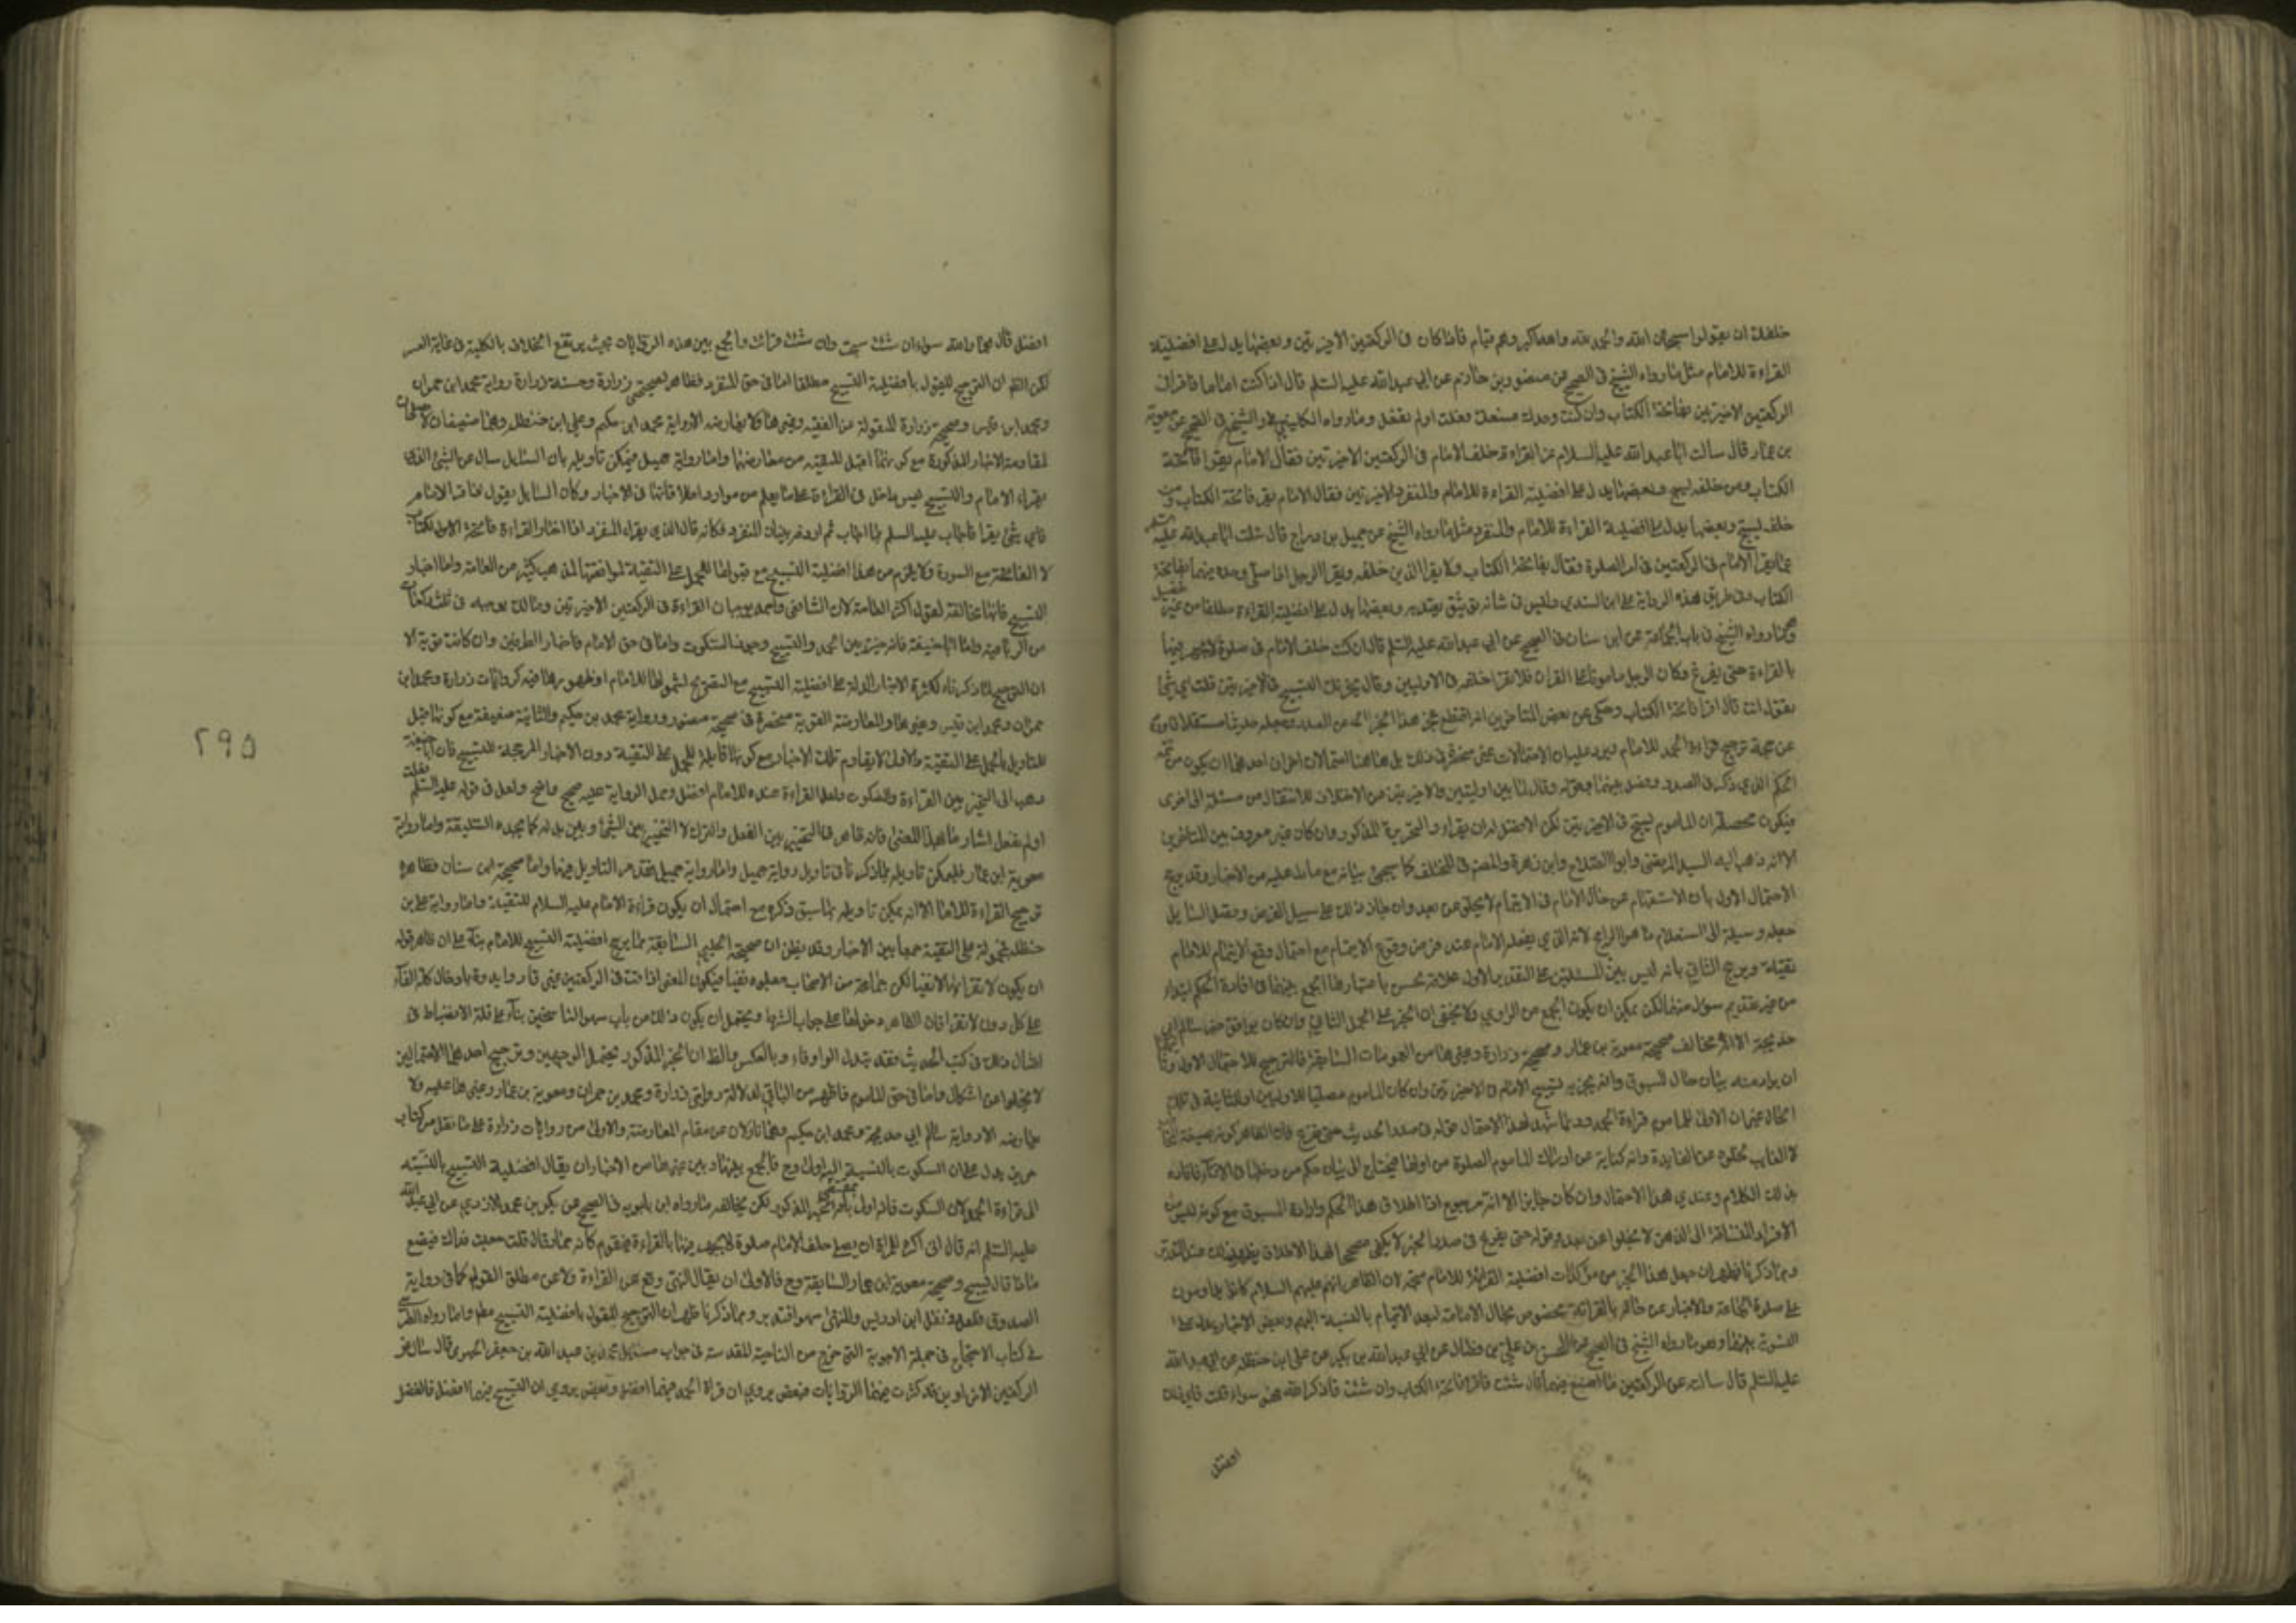 خلفك ان يقولوا سبحان الله والحمد لله والله اكبر وهم قيام فاذا كان في الركعتين الاخيرتين وبعضها يدل على افضلية
القراءة للامام مثل ما رواه الشيخ في الصحيح عن منصور بن حازم عن ابي عبد الله عليه السلم قال اذا كنت اماما فاقرأ في
الركعتين الاخيرتين بفاتحة الكتاب وان كنت وحدك فيسعك فعلت اولم تفعل وما رواه الكليني والشيخ في الصحيح عن معوية
بن عمار قال سالت ابا عبد الله عليه السلام عن القراءة خلف الامام في الركعتين الاخيرتين فقال الامام يقرا فاتحة
الكتاب ومن خلفه يسبح وبعضها يدل على افضلية القراءة للامام والمنفرد الاخيرتين فقال الامام يقرء فاتحة الكتاب ومن
خلفه يسبح وبعضها يدل على افضلية القراءة للامام والمنفرد مثل ما رواه الشيخ عن جميل بن دراج قال سئلت ابا عبد الله عليه السلم
عما يقرا الامام في الركعتين في اخر الصلوة فقال بفاتحة الكتاب ولا يقرا الذين خلفه ويقرا الرجل اذا صلى وحده فيهما بفاتحة
الكتاب وفي طريق هذه الرواية علي ابن السندي وليس في شانه توثيق يعتد به وبعضها يدل على افضلية القراءة مطلقا من غير تفصيل
وهو ما رواه الشيخ في باب الجماعة عن ابن سنان في الصحيح عن ابي عبد الله عليه السلم قال ان كنت خلف الامام في صلوة لا يجهر فيها
بالقراءة حتى يفرغ وكان الرجل مامونا على القران فلا تقرا خلفه في الاوليين وقال يجزيك التسبيح في الاخيرتين قلت اي شئ
تقول انت قال اقرا فاتحة الكتاب وحكي عن بعض المتاخرين انه اقتطع عجز هذا الخبر عن الصدر وجعله حديثا مستقلا
عن حجة ترجيح قراءة الحمد للامام ويرد عليه ان الاحتمالات غير منحصرة في ذلك بل هاهنا احتمالان اخران احدهما ان يكون من تتمة
الحكم الذي ذكر في الصدر وفصل بينهما بقوله وقال لما بين اوليتين والاخيرتين من الاختلاف للانتقال من مسئلة الى اخرى
فيكون محصله ان الماموم يسبح في الاخيرتين لكن الافضل له ان يقراء والتحريرة المذكور وان كان غير معروف بين المتاخرين
الا انه ذهب اليه السيد المرتضى وابو الصلاح وابن زهرة والمص في المختلف كما سيجئ بيانه مع ما يدل عليه من الاخبار وقد يرجح
الاحتمال الاول بان الاستفهام عن حال الامام في الايتمام لا يخلو عن بعد وان جاز ذلك على سبيل الفرض ويقصد السايل
جعله وسيلة الى استعلام ما هو الراجح لانه الذي يفعله الامام عند فرض وقوع الايتمام مع احتمال وقع الايتمام للامام
تقية ويرجح الثاني بانه ليس بين المسئلتين على التقدير الاول علاقة يحسن باعتبارها الجمع بينهما في افادة الحكم ابتداء
من غير تقديم سوال عنه لكن يمكن ان يكون الجمع من الراوي ولا يخفى ان الخبر على الحمل الثاني وان كان يوافق خبر سالم ابي
خديجة الا انه مخالف صحيحة معوية بن عمار وصحيحة زرارة وغيرهما من العمومات السابقة فالترجيح للاحتمال الاول
ان يراد منه بيان حال المسبوق وانه يجزيه تسبيح الامام في الاخيرتين وان كان الماموم مصليا للاوليين او للثانية في تلك
الحال غير ان الاولى للماموم قراءة الحمد ومما يشهد لهذا الاحتمال قوله في صدر الحديث حتى يفرغ فان الظاهر كونه بصيغة
لا الغايب لخلوه عن الفايدة وانه كناية عن ادراك الماموم الصلوة من اولها فيحتاج الى بيان حكم من دخل في الاثناء فافاده
بذلك الكلام وعندي هذا الاحتمال وان كان جايزا الا انه مرجوح اذ اطلاق هذا الحكم وارادة المسبوق مع كونه ليس من
الافراد المتساقة الى الذهن لا يخلوا عن بعد وقوله حتى يفرغ في صدر الخبر لا يكفي مصححا لهذا الاطلاق
ومما ذكرنا ظهر ان جعل هذا الخبر من مؤكدات افضلية القراءة للامام متجه لان الظاهر انهم عليهم السلام كانوا يداومون
على صلوة الجماعة والاخبار عن حالهم بالقراءة مخصوص بحال الامامة لبعد الايتمام بالنسبة اليهم وبعض الاخبار يدل على
التسوية بينهما وهو ما رواه الشيخ في الصحيح عن الحسن بن علي بن فضال عن ابي عبد الله بن بكير عن علي ابن حنظله عن ابي عبد الله
عليه السلم قال سالته عن الركعتين ما اصنع فيهما فقال ان شئت فاقرا فاتحة الكتاب وان شئت فاذكر الله فهو سواء قلت فاي ذلك
افضل
افضل قال هما والله سواء ان شئت سبحت وان شئت قرات والجمع بين هذه الروايات بحيث يرتفع الخلاف بالكلية في غاية العسر
لكن الظ ان الترجيح للقول بافضلية التسبيح مطلقا اما في حق المنفرد فظاهر لصحيحتي زرارة وحسنة زرارة رواية محمد ابن حمران
ومحمد ابن قيس وصحيحة زرارة المنقولة عن الفقيه وغيرها فلا يعارضه الا رواية محمد ابن حكيم وعلي ابن حنظله وهما ضعيفان لا يصلحان
لمقاومة الاخبار المذكورة مع كونهما احمل للتقية من معارضهما واما رواية جميل فيمكن تاويله بان السايل سال عن الشئ الذي
يقراء الامام والتسبيح غير داخل في القراءة على ما يعلم من موارد اطلاقاتها في الاخبار وكان السايل يقول
فاي شئ يقرا فاجاب عليه السلم بما اجاب ثم اردفه ببيان المنفرد فكانه قال الذي يقراء المنفرد اذا اختار القراءة فاتحة الكتاب
لا الفاتحة مع السورة فلا يلزم من هذا افضلية التسبيح مع قبولها للحمل على التقية لموافقتها لمذهب كثير من العامة واما اخبار
التسبيح فانها مخالفة لقول اكثر العامة لان الشافعي واحمد يوجبان القراءة في الركعتين الاخيرتين ومالك يوجبه في ثلث ركعات
من الرباعية واما ابا حنيفة فانه خير بين الحمد والتسبيح وجوز السكوت واما في حق الامام فاخبار الطرفين وان كانت قوية الا
ان الترجيح لما ذكرناه لكثرة الاخبار الدالة على افضلية التسبيح مع التصريح لشمولها للامام او ظهورها فيه كروايات زرارة ومحمد ابن
حمران ومحمد ابن قيس وغيرها والمعارضة القوية منحصرة في صحيحة منصور ورواية محمد بن حكيم والثانية ضعيفة مع كونها قابلة
للتاويل بالحمل على التقية والاولى لا يقاوم تلك الاخبار مع كونها قابلة للحمل على التقية دون الاخبار المرجحة للتسبيح فان ابا حنيفة
ذهب الى التخيير بين القراءة والسكوت ولعل القراءة عنده للامام افضل وحمل الرواية عليه صحيح واضح ولعل في قوله عليه السلم فعلت
اولم تفعل اشار ما لهذا المعنى فانه ظاهر في التخيير بين الفعل والترك لا التخيير بين الشئ وبين بدله كما يجده السليقة واما رواية
معوية ابن عمار فيمكن تاويله بما ذكرنا في تاويل رواية جميل واما رواية جميل فقد مر التاويل فيها واما صحيحة ابن سنان فظاهرة
ترجيح القراءة للامام الا انه يمكن تاويله بما سبق ذكره مع احتمال ان يكون قراءة الامام عليه السلام للتقية واما رواية علي بن
حنظله فمحمولة على التقية جمعا بين الاخبار وقد يظن ان صحيحة الحلبي السابقة مما يرجح افضلية التسبيح للامام بناء على ان ظاهر قوله
ان يكون لا تقرا نهيا لا نفيا لكن جماعة من الاصحاب جعلوه نفيا فيكون المعنى اذا قمت في الركعتين غير قارء وايده بادخال كلمة الفاء
على كل دون لا تقرا فان الظاهر دخولها على جواب الشرط ويحتمل ان يكون ذلك من باب سهو الناسخين بناء على قلة الانضباط في
امثال ذلك في كتب الحديث فقد يتبدل الواو فاء وبالعكس والظ ان الخبر المذكور يحتمل الوجهين وترجيح احد الاحتمالين
لا يخلوا عن اشكال واما في حق الماموم فاظهر من الباقي لدلالة روايتي زرارة ومحمد بن حمران ومعوية بن عمار وغيرها عليه ولا
يعارضه الا رواية سالم ابي خديجة ومحمد ابن حكيم وهما نازلان عن مقام المعارضة والاولى من روايات زرارة على ما نقل من كتاب
حريز يدل على ان السكوت بالنسبة اليه اولى وح فالجمع بينها وبين غيرها من الاخبار ان يقال افضلية التسبيح بالنسبة
الى قراءة الحمد لان السكوت فانه اولى بمقتضى الخبر المذكور لكن يخالفه ما رواه ابن بابويه في الصحيح عن بكر بن محمد الازدي عن ابي عبد الله
عليه السلم انه قال اني اكره للمرء ان يصلي خلف الامام صلوة لا يجهر فيها بالقراءة فيقوم كانه حمار قال قلت جعلت فداك فيصنع
ماذا قال يسبح وصحيحة معوية ابن عمار السابقة وح فالاولى ان يقال النهي وقع عن القراءة ولا عن مطلق القول كما في رواية
الصدوق ونقل ابن ادريس والمنتهى سهو فتدبر ومما ذكرنا ظهر ان الترجيح للقول بافضلية التسبيح مطلقا واما رواه الطبرسي
في كتاب الاحتجاج في جملة الاجوبة التي خرج من الناحية المقدسة في جواب مسائل محمد بن عبد الله بن جعفر الحميري قال ساله عن
الركعتين الاخراوين قد كثرت فيهما الروايات فبعض يروي ان قراة الحمد فيهما افضل وبعض يروي ان التسبيح فيهما افضل فالفضل
٢٩٥